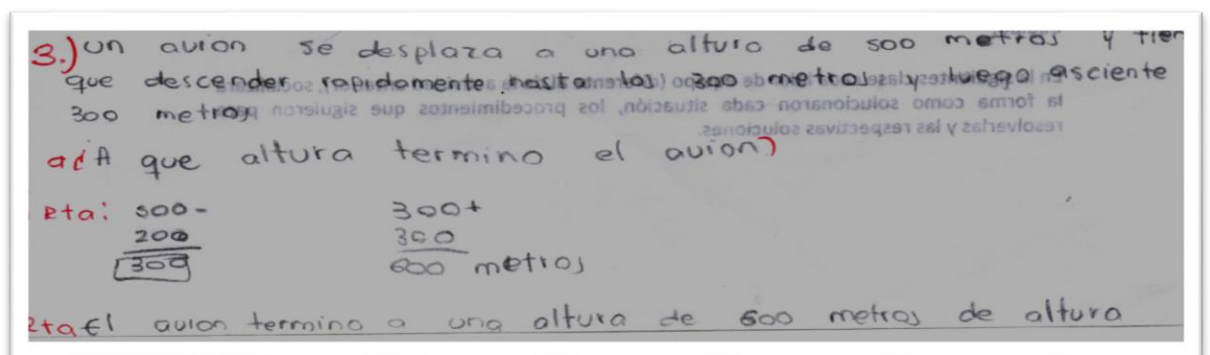 3.) un avion se desplaza a una altura de 500 metros y tien
que descender rapidamente hasta los 300 metros y luego asciente
300 metros
a ¿A que altura termino el avion?
Rta: 500- 300+
200 300
300 600 metros
Rta El avion termino a una altura de 600 metros de altura